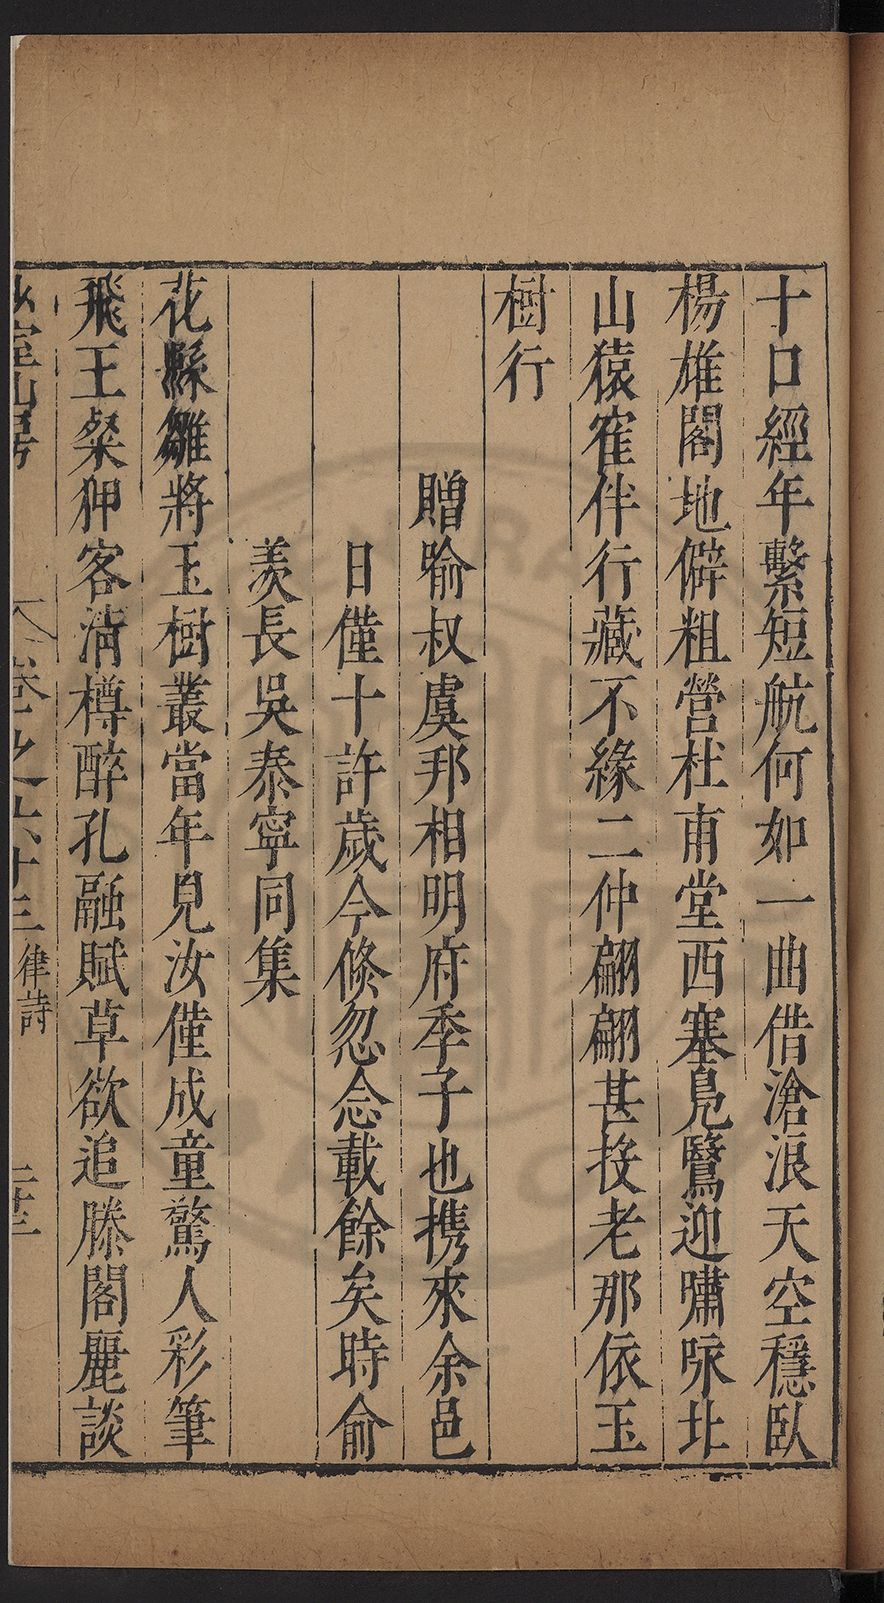 十口經年繫短航何如一曲借滄浪天空穩臥
楊雄閣地僻粗營杜甫堂西塞鳧鷖迎嘯咏北
山猿寉伴行藏不緣二仲翩翩甚投老那依玉
樹行
贈喻叔虞邦相明府季子也携來余邑
日僅十許歲今倐忽念載餘矣時俞
羨長吳泰寧同集
花縣雛將玉樹叢當年見汝僅成童驚人彩筆
飛王粲狎客清樽醉孔融賦草欲追滕閣麗談
少室山房
卷之六十三 律詩
二十三